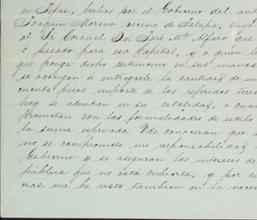 en Tepas, hechas por el Gobierno del ant
Joaquin Moreno vecino de Jalapa, cuyo
el Sr Coronel Dn José Ma. Alfaro que
o pasado para esa Capital, y a quien le
que ponga dicho testimonio en sus manos
se sirvan á entregarle la cantidad de m
cuenta pesos importe de las referidas tres
hoy se adeudan en su totalidad, o cuan
con las formalidades de estilo
la suma espresada. Vde conoceran que
no se compromete mi responsabilidad
Gobierno y se aseguran los intereses de
pública que no está cubierta, y por es
cias me he visto tambien en la neces